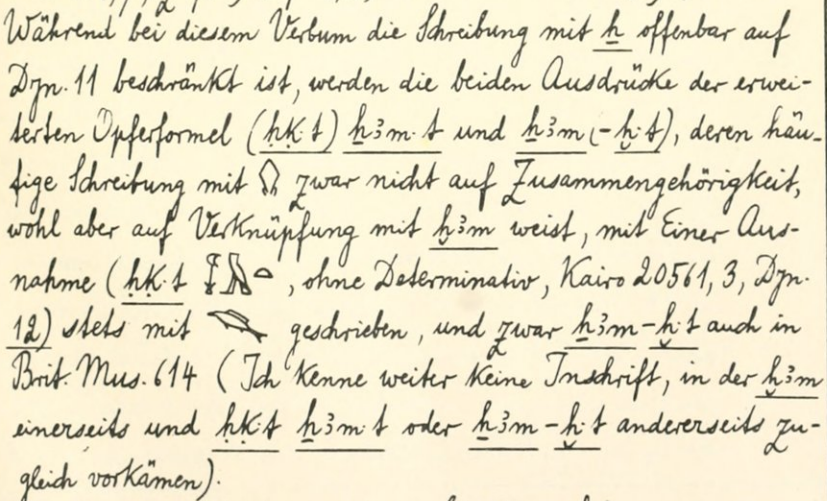 Während bei diesem Verbum die Schreibung mit ẖ offenbar auf
Dyn. 11 beschränkt ist, werden die beiden Ausdrücke der erwei-
terten Opferformel (ḥḳ·t) ẖꜣm·t und ẖꜣm(-ḫ·t), deren häu-
fige Schreibung mit 𓂘 zwar nicht auf Zusammengehörigkeit,
wohl aber auf Verknüpfung mit ḫꜣm weist, mit Einer Aus-
nahme (ḥḳ·t , ohne Determinativ, Kairo 20561, 3, Dyn.
12) stets mit 𓆞 geschrieben, und zwar ẖꜣm-ḫ·t auch in
Brit. Mus. 614 (Ich kenne weiter keine Inschrift, in der ḫꜣm
einerseits und ḥḳ·t ẖꜣm·t oder ẖꜣm-ḫ·t andererseits zu-
gleich vorkämen).